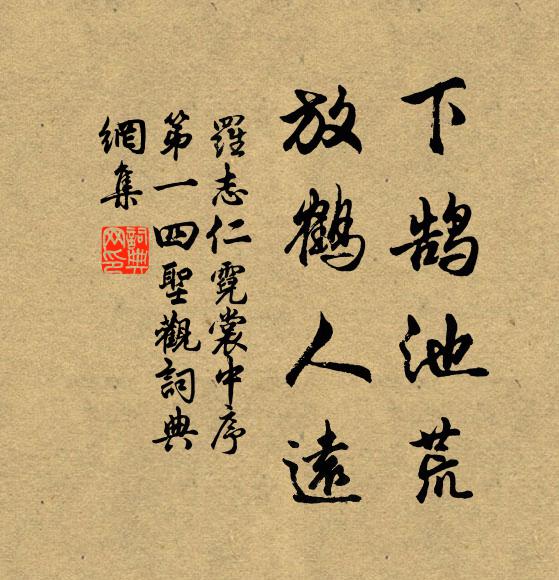 下鹄池荒
放鶴人遠
羅志仁霓裳中序
第一四聖觀詞典
網集
詞典
网印